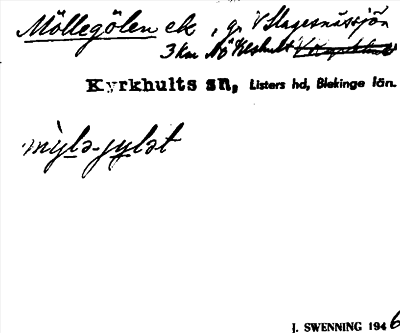 Möllegölen ek, gr. V Slagesnässjön
3 km NÖ Vilshult
Kyrkhults sn, Listers hd, Blekinge län.
mỳlə-jylət
J. SWENNING 1946